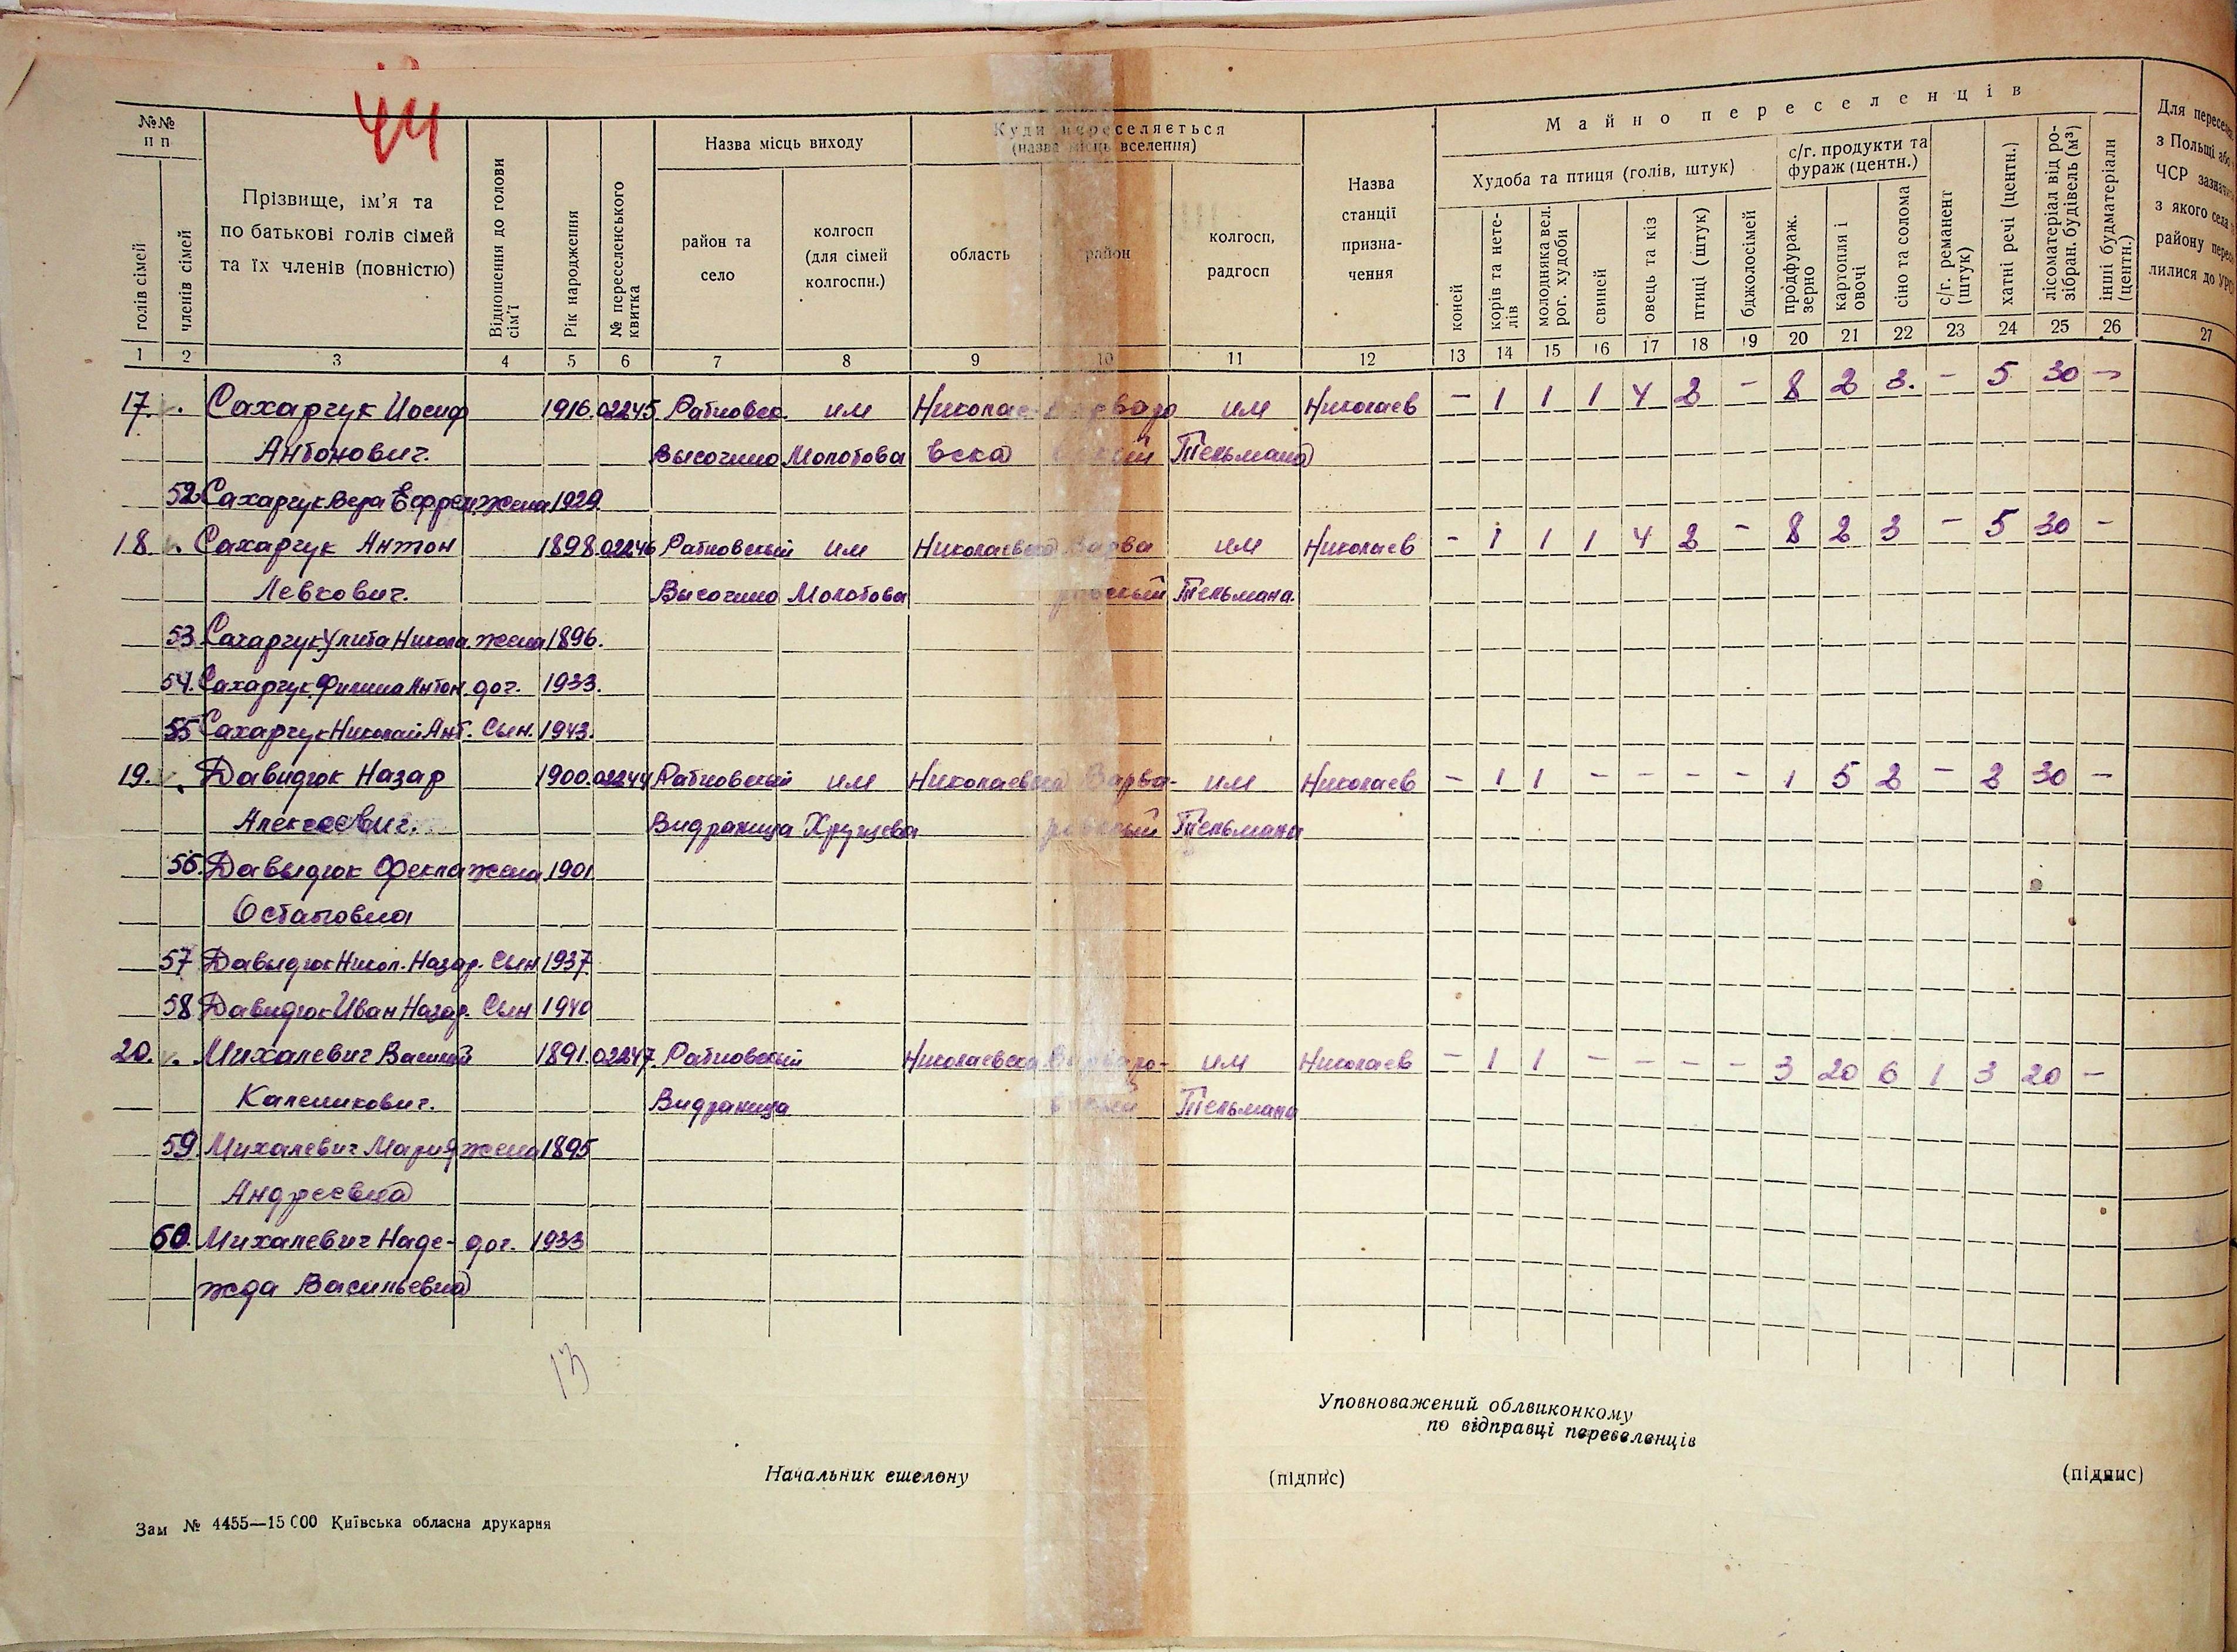 44
№№ п п
голів сімей
членів сімей
Прізвище, ім'я та по батькові голів сімей та їх членів (повністю)
Відношення до голови сім'ї
Рік народження
№ переселенського квитка
Назва місць виходу
район та село
колгосп (для сімей колгоспн.)
Куди переселяється (назва місць вселення)
область
район
колгосп, радгосп
Назва станції призна-чення
Майно переселенців
Худоба та птиця (голів, штук)
коней
корів та нете-лів
молодняка вел. рог. худоби
свиней
овець та кіз
птиці (штук)
бджолосімей
с/г. продукти та фураж (центн.)
продфураж. зерно
картопля і овочі
сіно та солома
с/г. реманент (штук)
хатні речі (центн.)
лісоматеріал від ро-зібран. будівель (м³)
інші будматеріали (центн.)
Для пересел
з Польщі або
ЧСР зазнач
з якого села
району перес
лилися до УРС
1 2 3 4 5 6 7 8 9 10 11 12 13 14 15 16 17 18 19 20 21 22 23 24 25 26 27
17. v. Сахарчук Иосиф 1916. 02245 Ратновск. им Николае- Варваро им Николаев - 1 1 1 4 2 - 8 2 3. - 5 30 -
Антонович. Высочино Молотова вская вский Тельмана
52 Сахарчук Вера Ефрем. жена 1929.
18. v. Сахарчук Антон 1898. 02246 Ратновский им Николаевская Варва им Николаев - 1 1 1 4 2 - 8 2 3 - 5 30 -
Левкович. Высочино Молотова ровский Тельмана.
53. Сахарчук Улита Никола. жена 1896.
54. Сахарчук Антон. доч. 1933.
55 Сахарчук Николай Ант. Сын. 1943.
19. v. Давидюк Назар 1900. 02244 Ратновский им Николаевская Варва- им Николаев - 1 1 - - - - 1 5 2 - 2 30 -
Алексеевич. Видраница Хрущева ровский Тельмана
56. Давыдюк Фекла жена 1901
Остаповна
57 Давыдюк Никол. Назар. Сын 1937
58 Давидюк Иван Назар. Сын 1940
20. v. Михалевич Василий 1891. 02247. Ратновский Николаевская Варваро- им Николаев - 1 1 - - - - 3 20 6 1 3 20 -
Каленикович. Видраница вский Тельмана
59. Михалевич Мария жена 1895
Андреевна
60. Михалевич Наде- доч. 1933
жда Васильевна
13
Уповноважений облвиконкому
по відправці переселенців
Начальник ешелону (підпис) (підпис)
Зам № 4455—15000 Київська обласна друкарня